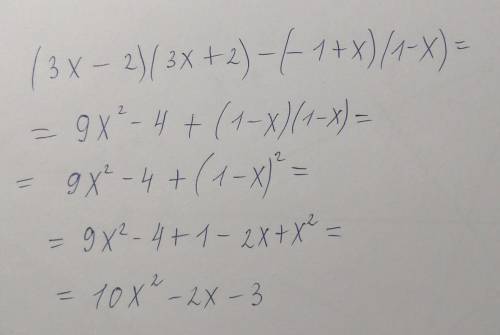 (3x − 2)(3x + 2) − (− 1 + x)(1 − x) =
= 9x² − 4 + (1 − x)(1 − x) =
= 9x² − 4 + (1 − x)² =
= 9x² − 4 + 1 − 2x + x² =
= 10x² − 2x − 3